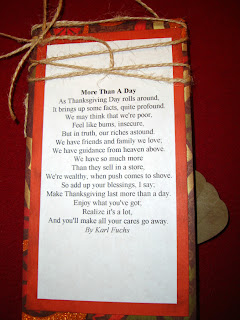 More Than A Day
As Thanksgiving Day rolls around,
It brings up some facts, quite profound.
We may think that we're poor,
Feel like bums, insecure,
But in truth, our riches astound.
We have friends and family we love;
We have guidance from heaven above.
We have so much more
Than they sell in a store,
We're wealthy, when push comes to shove.
So add up your blessings, I say;
Make Thanksgiving last more than a day.
Enjoy what you've got;
Realize it's a lot,
And you'll make all your cares go away.
By Karl Fuchs